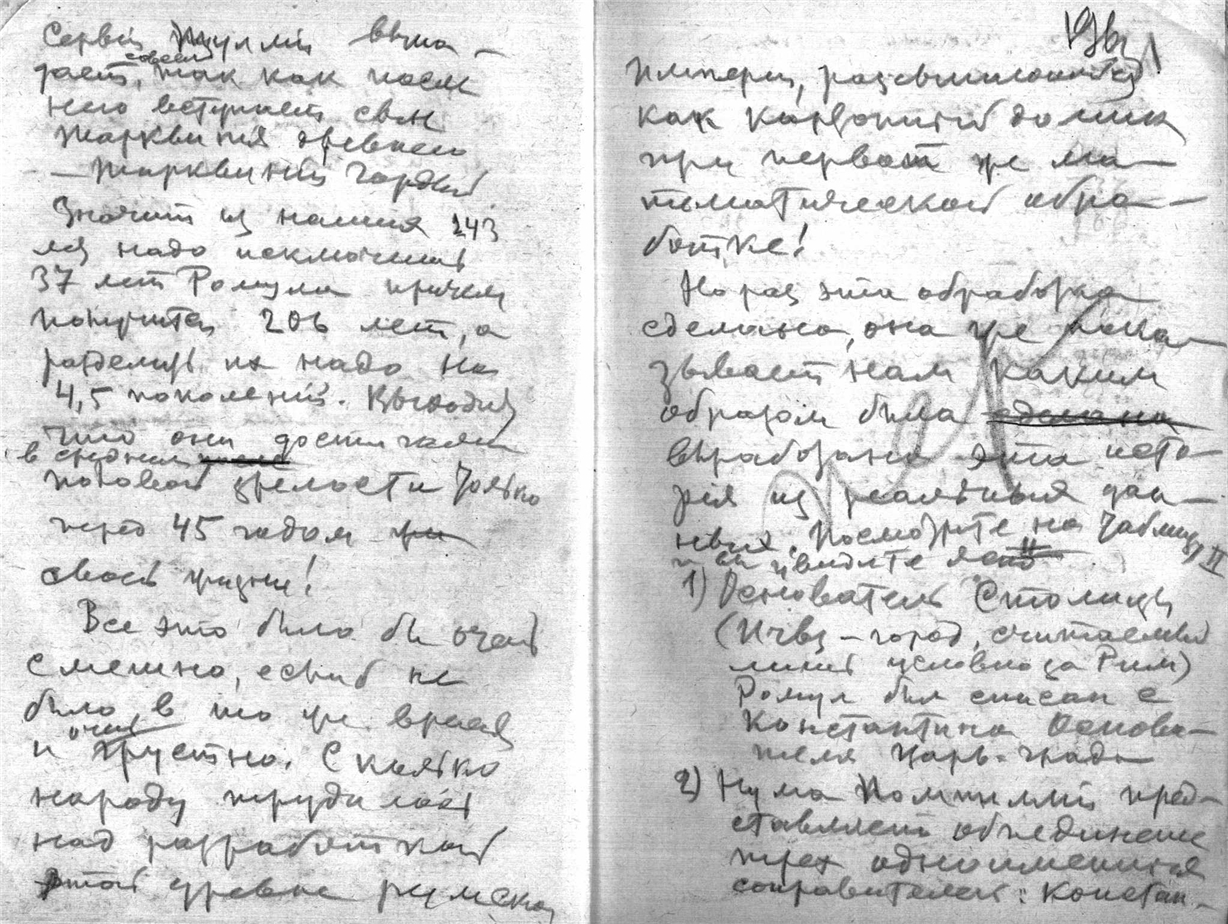 Сервий Туллий выпа-
совсем
дает, так как после
него вступает сын
Тарквиния древнего
— Тарквиний Гордый
Значит из наших 243
лет надо исключить
37 лет Ромула причем
получится 206 лет, а
разделить их надо на
4,5 поколений. Выходит
что они достигали
в среднем
половой зрелости только
через 45 годом
своей жизни!
Все это было бы очень
смешно, если б не
было в то же время
очень
и грустно. Сколько
народу трудилось
над разработкой
этой древне римской
империи, разсыпающейся
как карточный домик
при первой же ма-
тематической обра-
ботке!
Но раз эта обработка
сделана, она уже пока-
зывает нам каким
образом была сделана
выработана эта исто-
рия из реальных дан-
ных. Посмотрите на таблицу II
и вы увидите
1) Основатель Столицы
(Ичвз - город, считаемый
лишь условно за Рим)
Ромул был списан с
Константина Основа-
теля Царь-града
2) Нума Помпилий пред-
ставляет объединение
трех одноименных
соправителей: Констан-